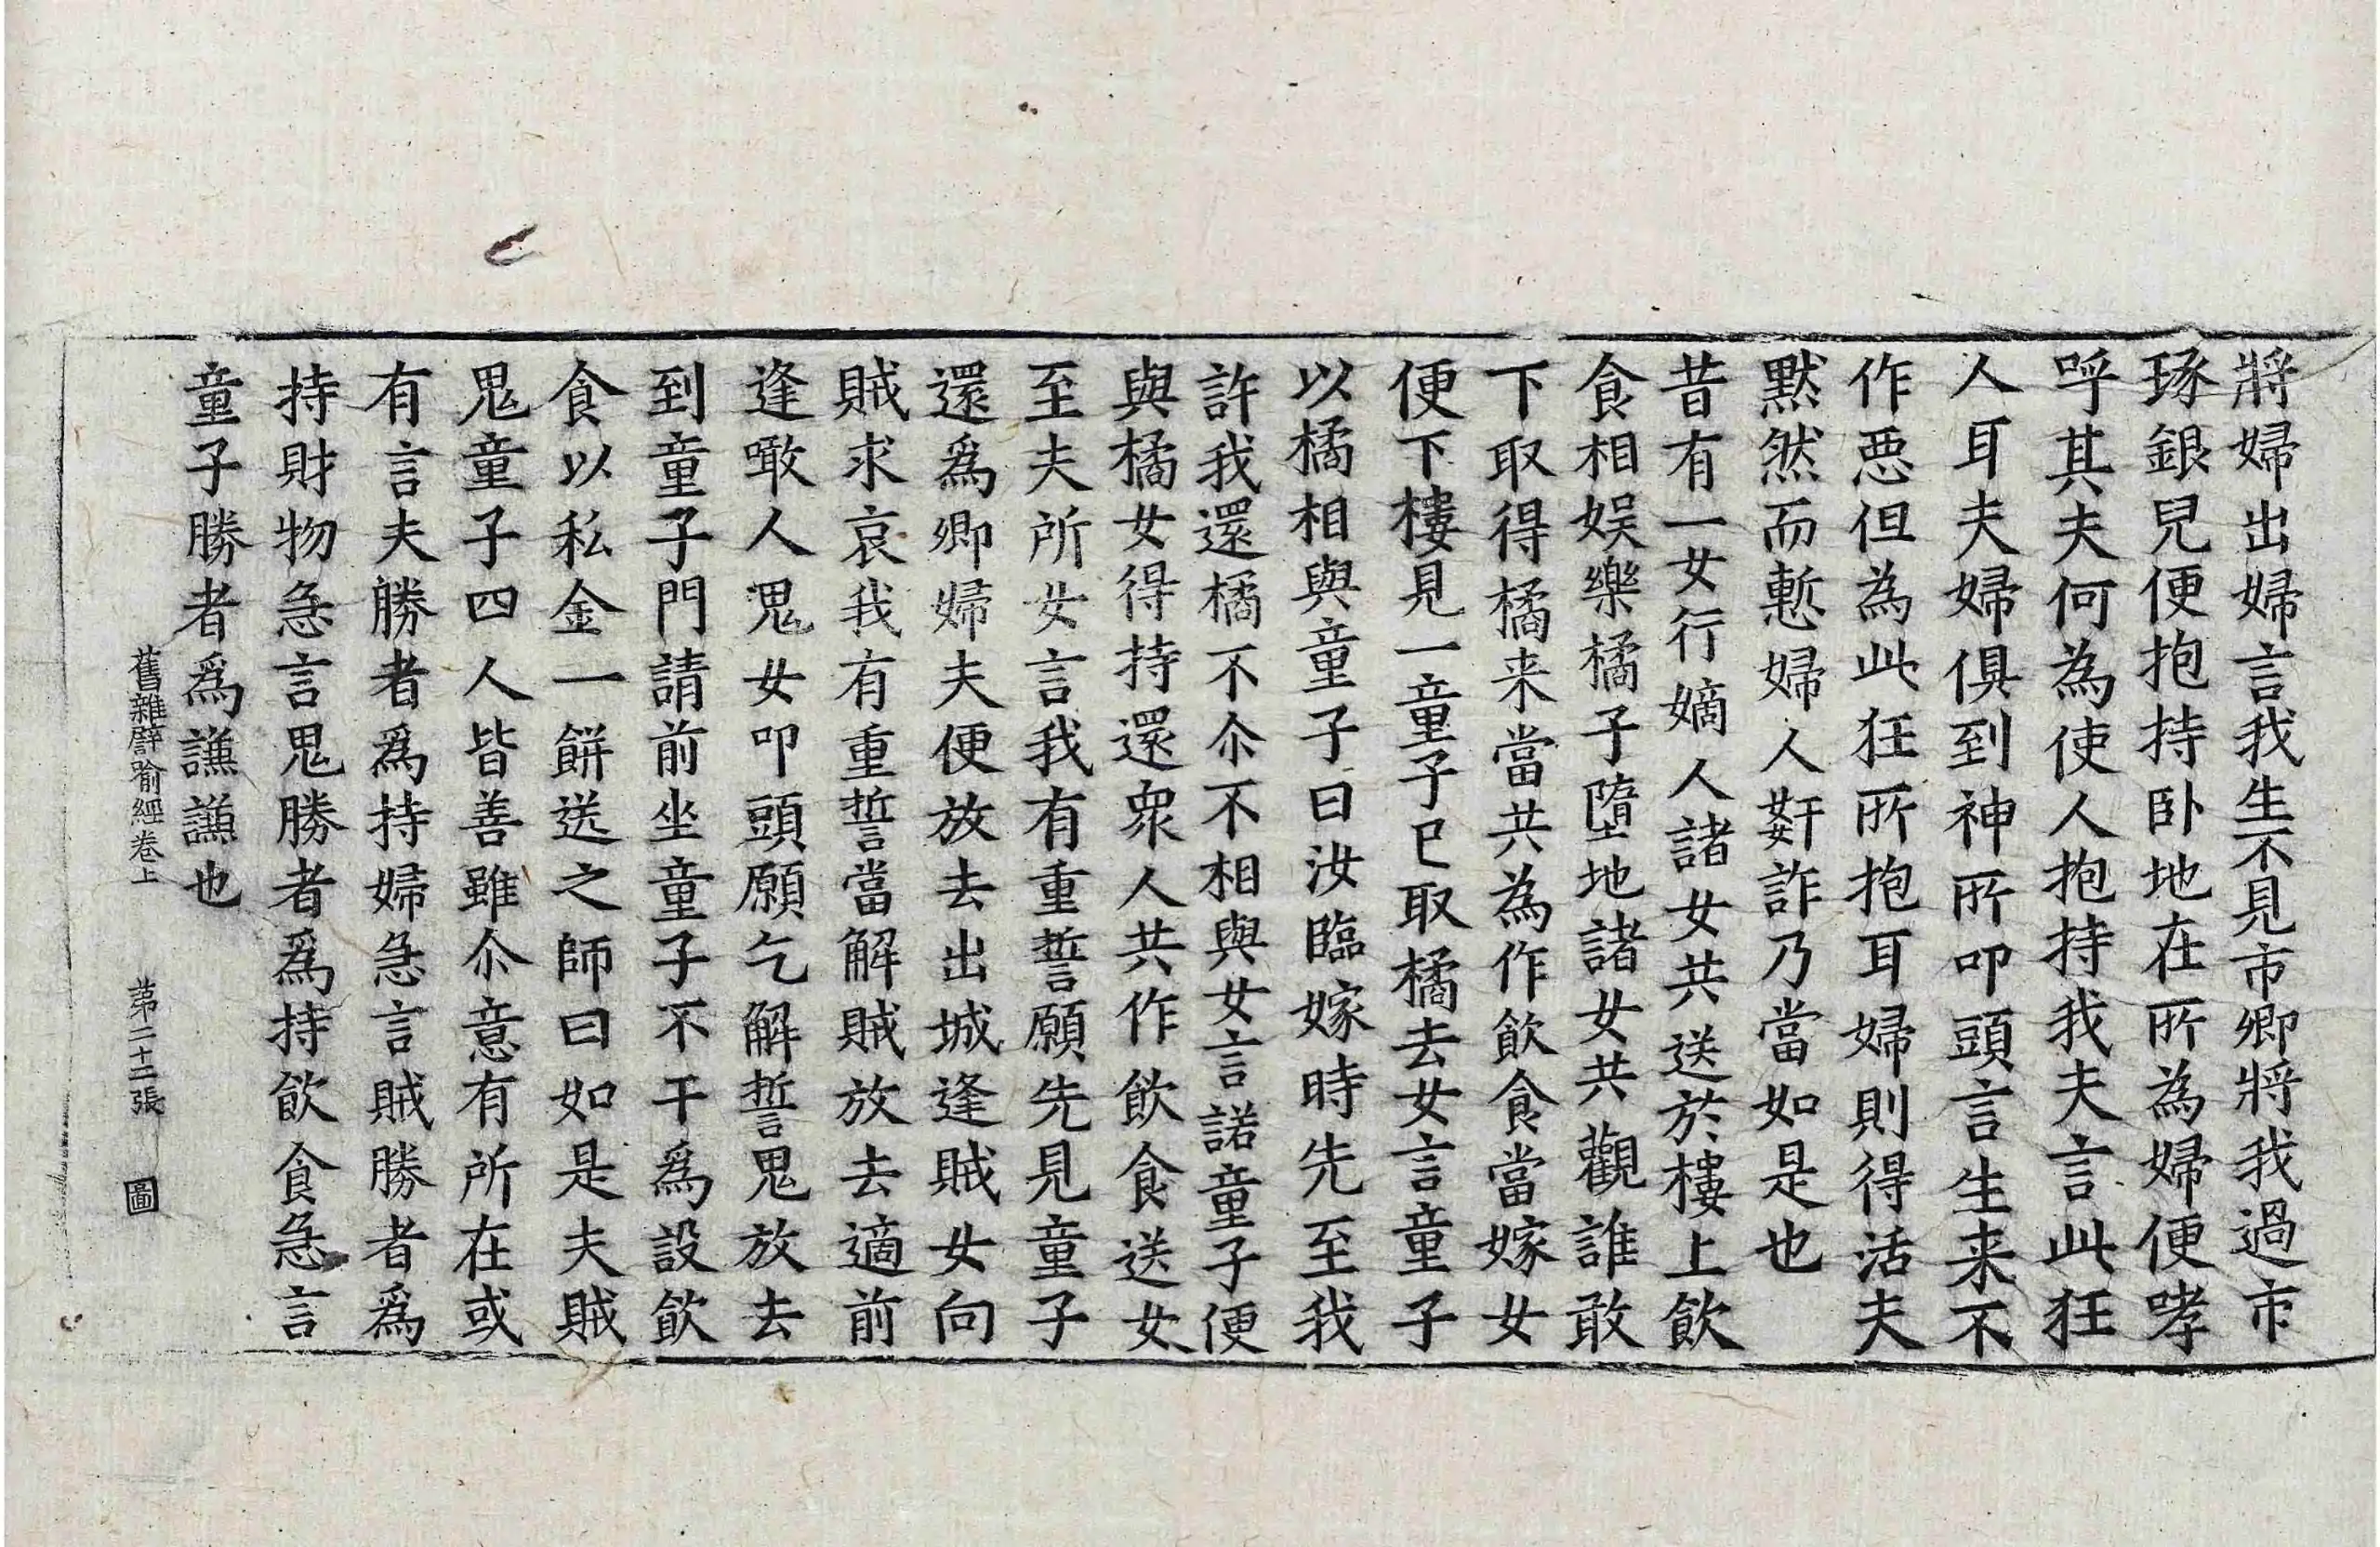 將婦出婦言我生不見市卿將我過市
琢銀兒便抱持卧地在所為婦便哮
呼其夫何為使人抱持我夫言此狂
人耳夫婦俱到神所叩頭言生来不
作恶但為此狂所抱耳婦則得活夫
默然而慙婦人姧詐乃當如是也
昔有一女行嫡人諸女共送於樓上飲
食相娱樂橘子墮地諸女共觀誰敢
下取得橘来當共為作飲食當嫁女
便下樓見一童子已取橘去女言童子
以橘相與童子曰汝臨嫁時先至我
許我還橘不尒不相與女言諾童子便
與橘女得持還衆人共作飲食送女
至夫所女言我有重誓願先見童子
還爲卿婦夫便放去出城逢賊女向
賊求哀我有重誓當解賊放去適前
逢噉人鬼女叩頭願乞解誓鬼放去
到童子門請前坐童子不干爲設飲
食以私金一餅送之師曰如是夫賊
鬼童子四人皆善雖尒意有所在或
有言夫勝者爲持婦急言賊勝者爲
持財物急言鬼勝者爲持飲食急言
童子勝者爲謙謙也
舊雜譬喻經卷上 第二十二張 圖